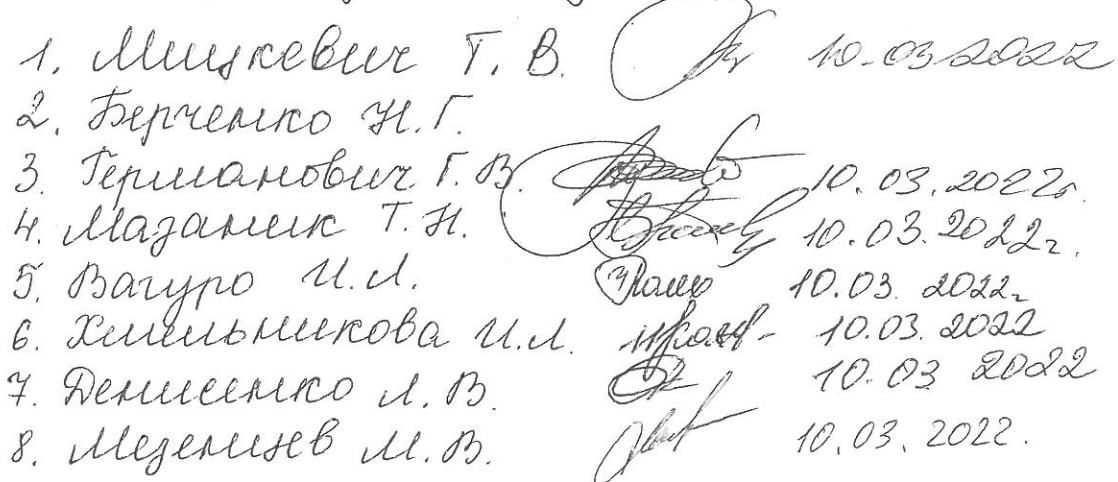 1. Мицкевич Т. В. 10.03.2022
2. Берченко Н.Г.
3. Германович Г.В. 10.03.2022г.
4. Мазаник Т.Н. 10.03.2022г.
5. Вагуро И.Л. 10.03.2022г
6. Хмельникова И.Л. 10.03.2022
7. Денисенко Л.В. 10.03 2022
8. Мезенцев М.В. 10.03.2022.